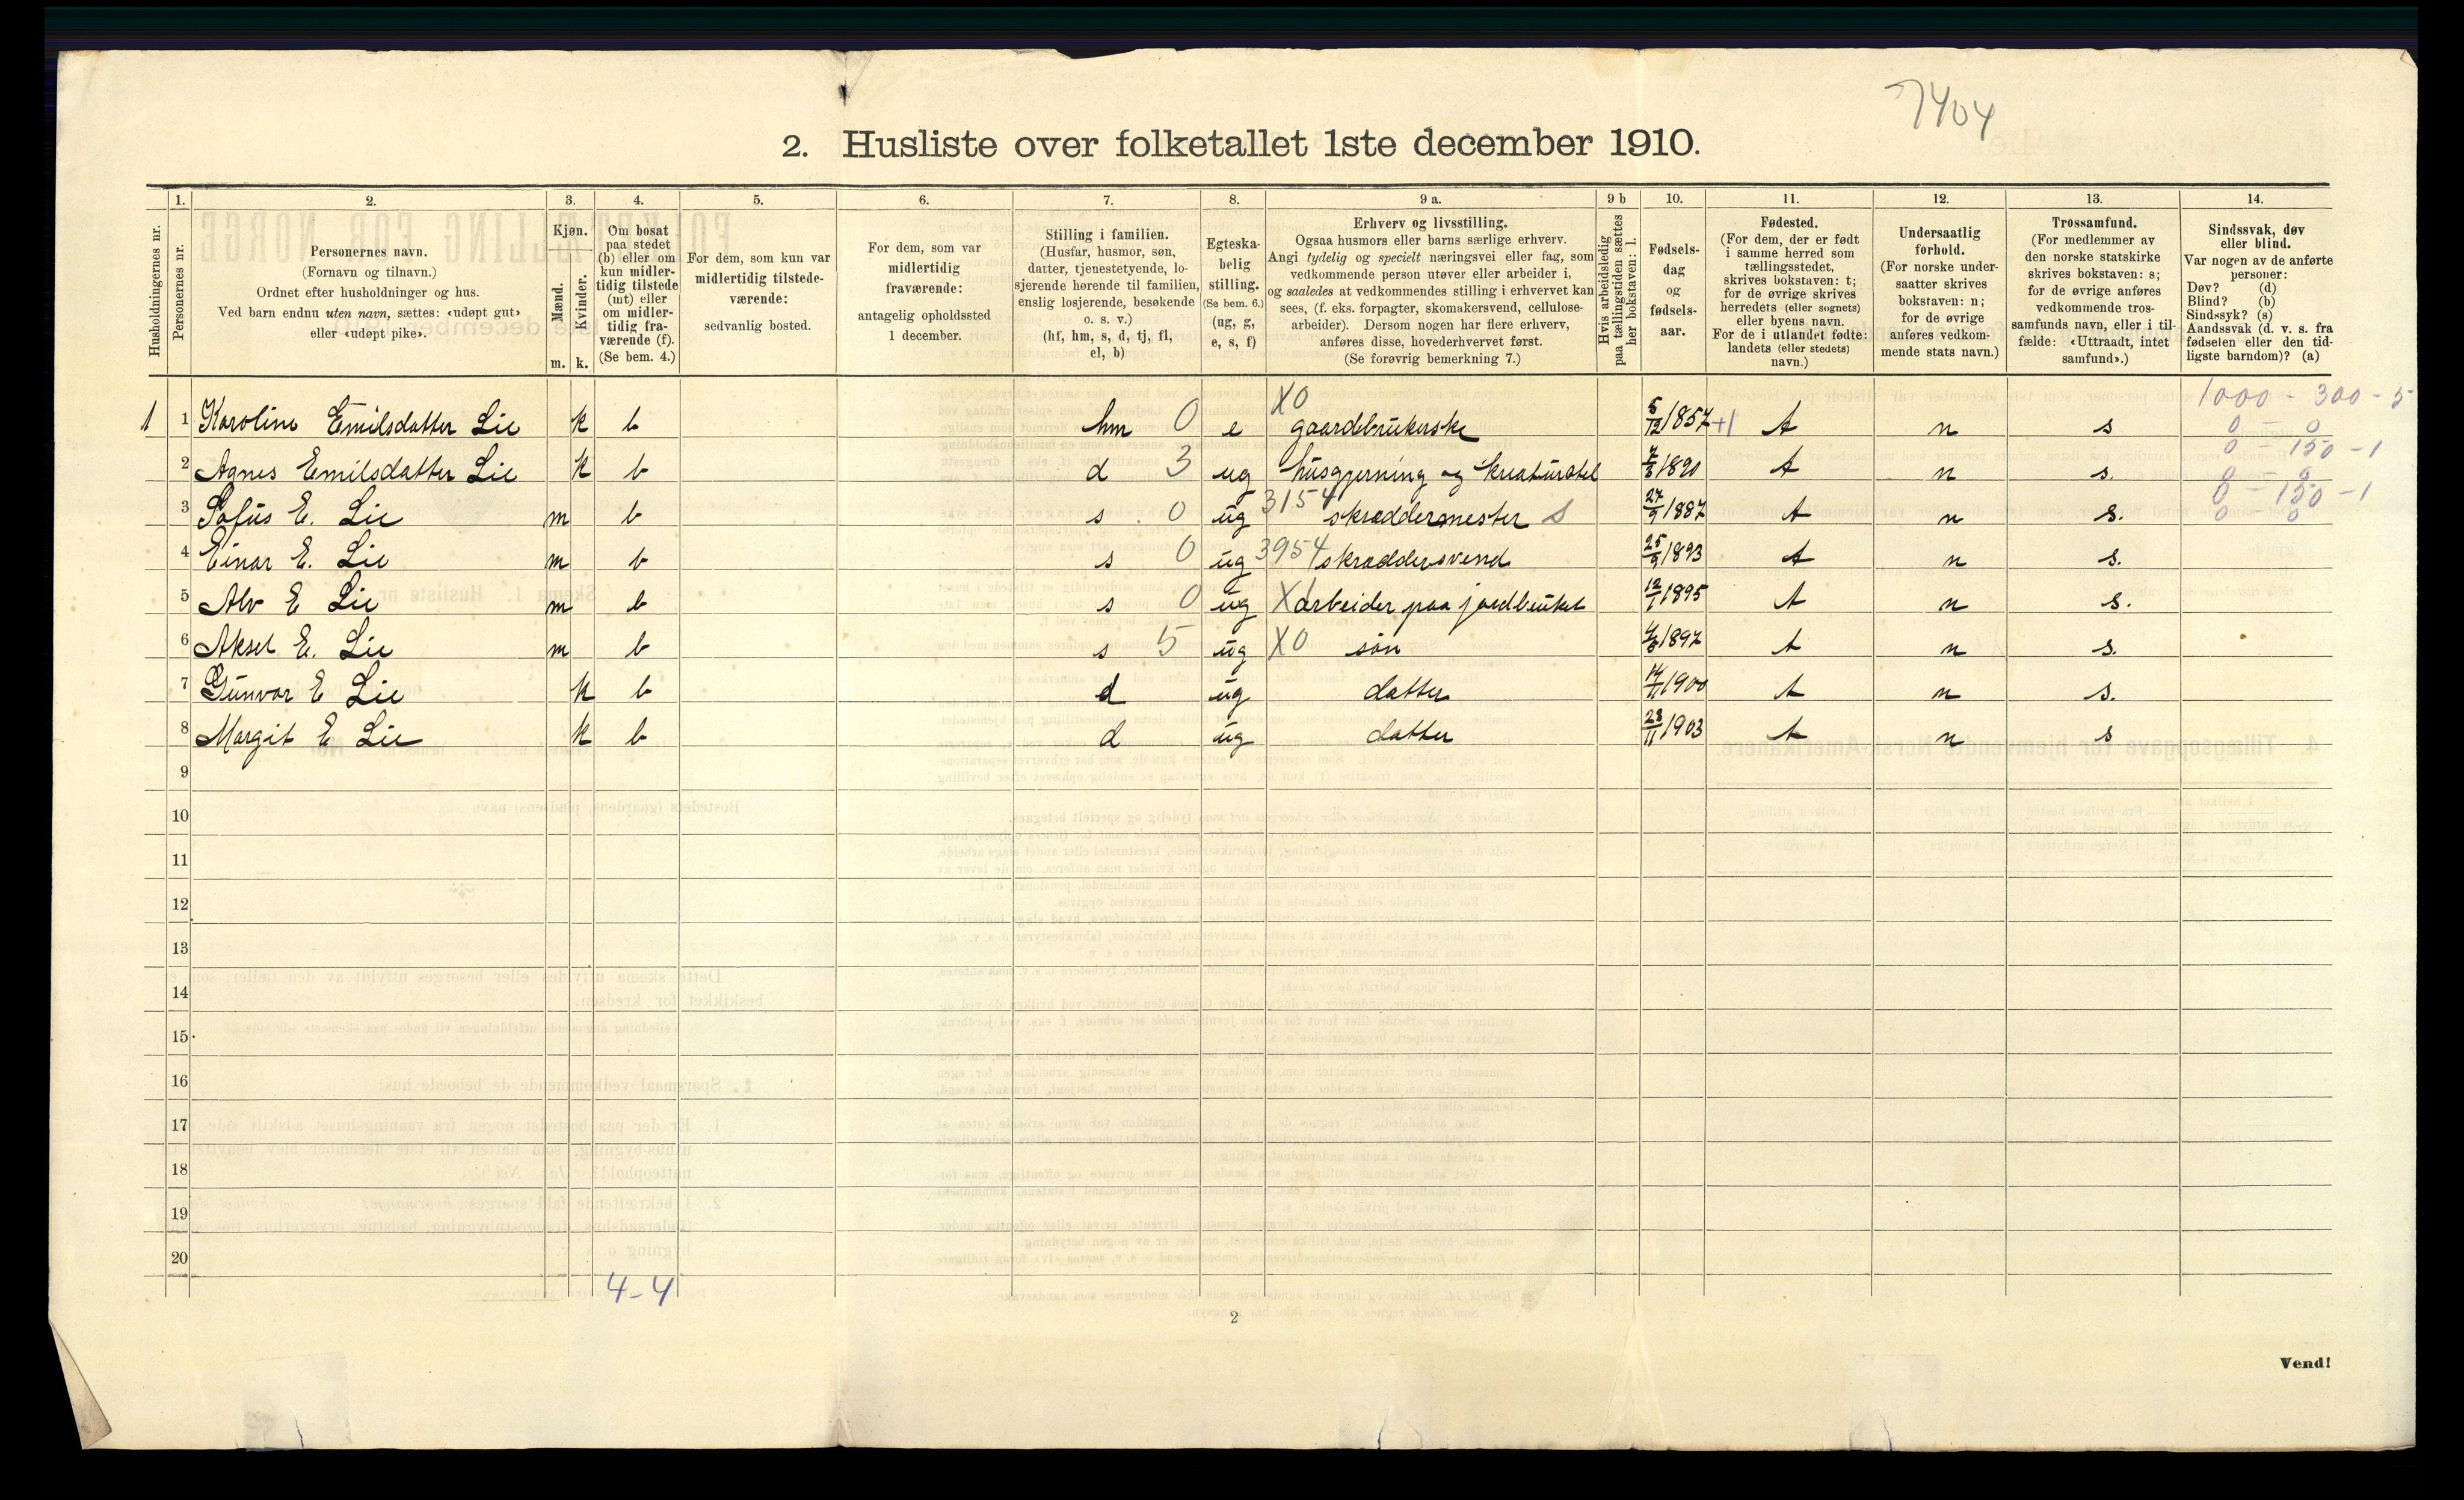 7404
2. Husliste over folketallet 1ste december 1910.
Husholdningernes nr.
1. Personernes nr.
2. Personernes navn.
(Fornavn og tilnavn.)
Ordnet efter husholdninger og hus.
Ved barn endnu uten navn, sættes: «udøpt gut»
eller «udøpt pike».
3. Kjøn.
Mænd. Kvinder.
m. k.
4. Om bosat
paa stedet
(b) eller om
kun midler-
tidig tilstede
(mt) eller
om midler-
tidig fra-
værende (f).
(Se bem. 4.)
5. For dem, som kun var
midlertidig tilstede-
værende:
sedvanlig bosted.
6. For dem, som var
midlertidig
fraværende:
antagelig opholdssted
1 december.
7. Stilling i familien.
(Husfar, husmor, søn,
datter, tjenestetyende, lo-
sjerende hørende til familien,
enslig losjerende, besøkende
o. s. v.)
(hf, hm, s, d, tj, fl,
el, b)
8. Egteska-
belig
stilling.
(Se bem. 6.)
(ug, g,
e, s, f)
9 a. Erhverv og livsstilling.
Ogsaa husmors eller barns særlige erhverv.
Angi tydelig og specielt næringsvei eller fag, som
vedkommende person utøver eller arbeider i,
og saaledes at vedkommendes stilling i erhvervet kan
sees, (f. eks. forpagter, skomakersvend, cellulose-
arbeider). Dersom nogen har flere erhverv,
anføres disse, hovederhvervet først.
(Se forøvrig bemerkning 7.)
9 b Hvis arbeidsledig
paa tællingstiden sættes
her bokstaven: l.
10. Fødsels-
dag
og
fødsels-
aar.
11. Fødested.
(For dem, der er født
i samme herred som
tællingsstedet,
skrives bokstaven: t;
for de øvrige skrives
herredets (eller sognets)
eller byens navn.
For de i utlandet fødte:
landets (eller stedets)
navn.)
12. Undersaatlig
forhold.
(For norske under-
saatter skrives
bokstaven: n;
for de øvrige
anføres vedkom-
mende stats navn.)
13. Trossamfund.
(For medlemmer av
den norske statskirke
skrives bokstaven: s;
for de øvrige anføres
vedkommende tros-
samfunds navn, eller i til-
fælde: «Uttraadt, intet
samfund».)
14. Sindssvak, døv
eller blind.
Var nogen av de anførte
personer:
Døv? (d)
Blind? (b)
Sindssyk? (s)
Aandssvak (d. v. s. fra
fødselen eller den tid-
ligste barndom)? (a)
1000 - 300 - 5
1 1 Karoline Emilsdatter Lie k b hm 0 e X0 gaardbrukerske 5/12 1857 +1 t n s 0 - 0
0 - 150 - 1
2 Agnes Emilsdatter Lie k b d 3 ug husgjerning og kreaturstel t n s. 0 - 0
0 - 150 - 1
3 Sofus E. Lie m b s 0 ug 3154 skræddermester S 27/9 1887 t n s. 0 0
4 Einar E. Lie m b s 0 ug 3954 skræddersvend 1893 t n s.
5 Alv E Lie m b s 0 ug X1 arbeider paa jordbruket 12/1 1895 t n s.
6 Aksel E. Lie m b s 5 ug X0 søn 1897 t n s.
7 Gunvor E Lie k b d ug datter 14/11 1900 t n s.
8 Margit E Lie k b d ug datter 23/11 1903 t n s
9
10
11
12
13
14
15
16
17
18
19
20
4-4
2
Vend!